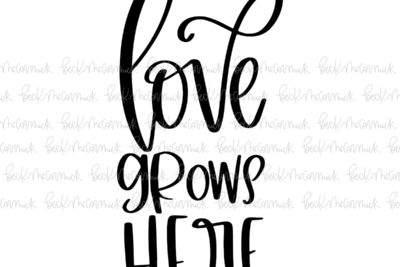 love
grows
HERE